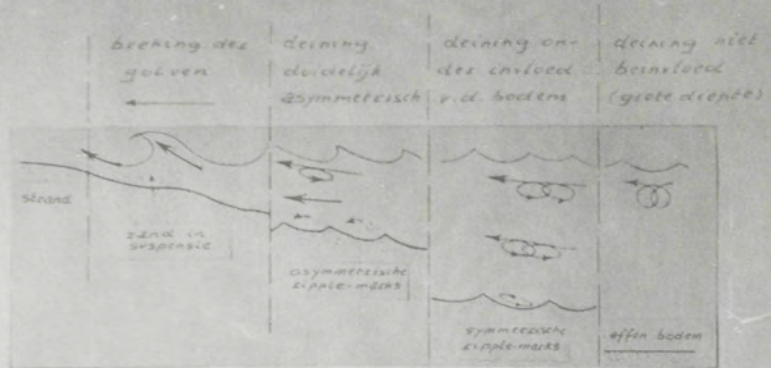 breking der
golven
deining
duidelijk
asymmetrisch
deining on-
der invloed
v.d. bodem
deining niet
beinvloed
(grote diepte)
strand
zand in
suspensie
asymmetrische
ripple-marks
symmetrische
ripple-marks
effen bodem